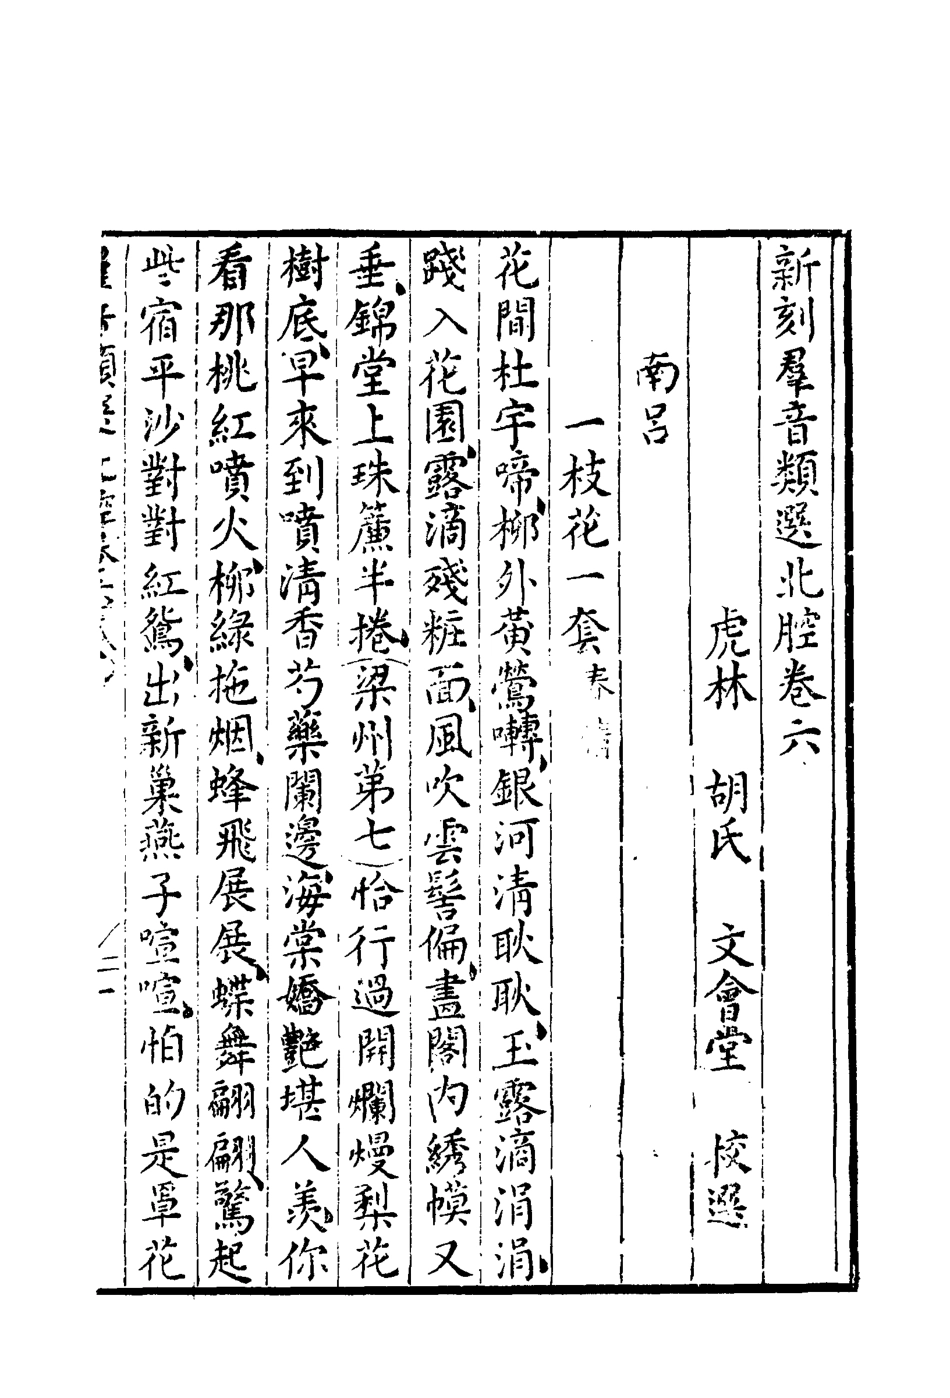 新刻羣音類選北腔卷六
虎林 胡氏 文會堂 校選
南呂
一枝花一套春
花間杜宇啼、柳外黃鶯囀、銀河清耿耿、玉露滴涓涓、
踐入花園、露滴殘粧面、風吹雲髻偏、畫閣內綉幙又
垂、錦堂上珠簾半捲、(梁州第七)恰行過開爛熳梨花
樹底、早來到噴清香芍藥闌邊、海棠嬌艷堪人羨、你
看那桃紅噴火、柳綠拖烟、蜂飛展展、蝶舞翩翩、驚起
些宿平沙對對紅鴛、出新巢燕子喧喧。怕的是罩花